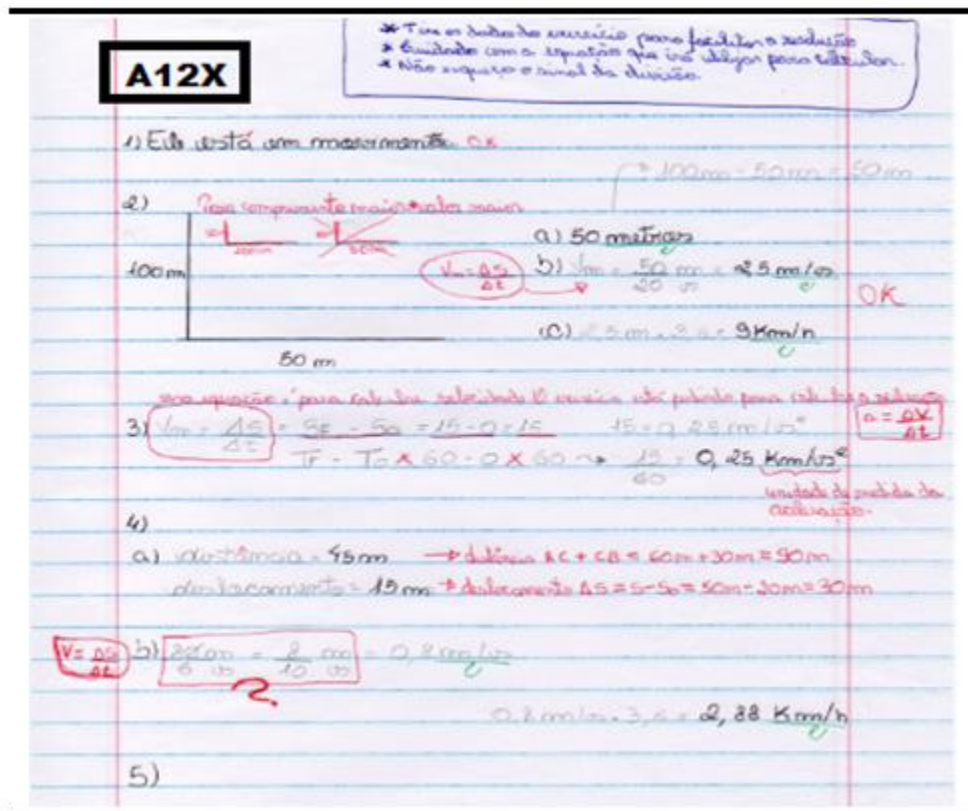 * Tire os dados do exercício para facilitar a resolução
* Cuidado com a equação que irá utilizar para calcular.
* Não esqueça o sinal da divisão.
A12X
1) Ele está em movimento OK
100m - 50m = 50m
2)
maior valor maior
100 m
50 m
a) 50 metros
Vm = ΔS/Δt
b) Vm = 50 m/20 s = 2,5 m/s
OK
c) 2,5 m . 3,6 = 9 Km/h
equação é para calcular velocidade O exercício está pedindo para calcular a aceleração
3) Vm = ΔS/Δt = SF - So = 15-0 = 15
15 = 0,25 m/s²
a = ΔV/Δt
TF - To × 60 - 0 × 60 → 15/60 = 0,25 Km/s²
unidade de medida da
aceleração.
4)
a) distância = 45m → distância AC + CB = 60m + 30m = 90m
deslocamento = 15m → deslocamento ΔS = S - So = 50m - 20m = 30m
V = ΔS/Δt
b) = 8 m/10 s = 0,8 m/s
?
0,8 m/s . 3,6 = 2,88 Km/h
5)